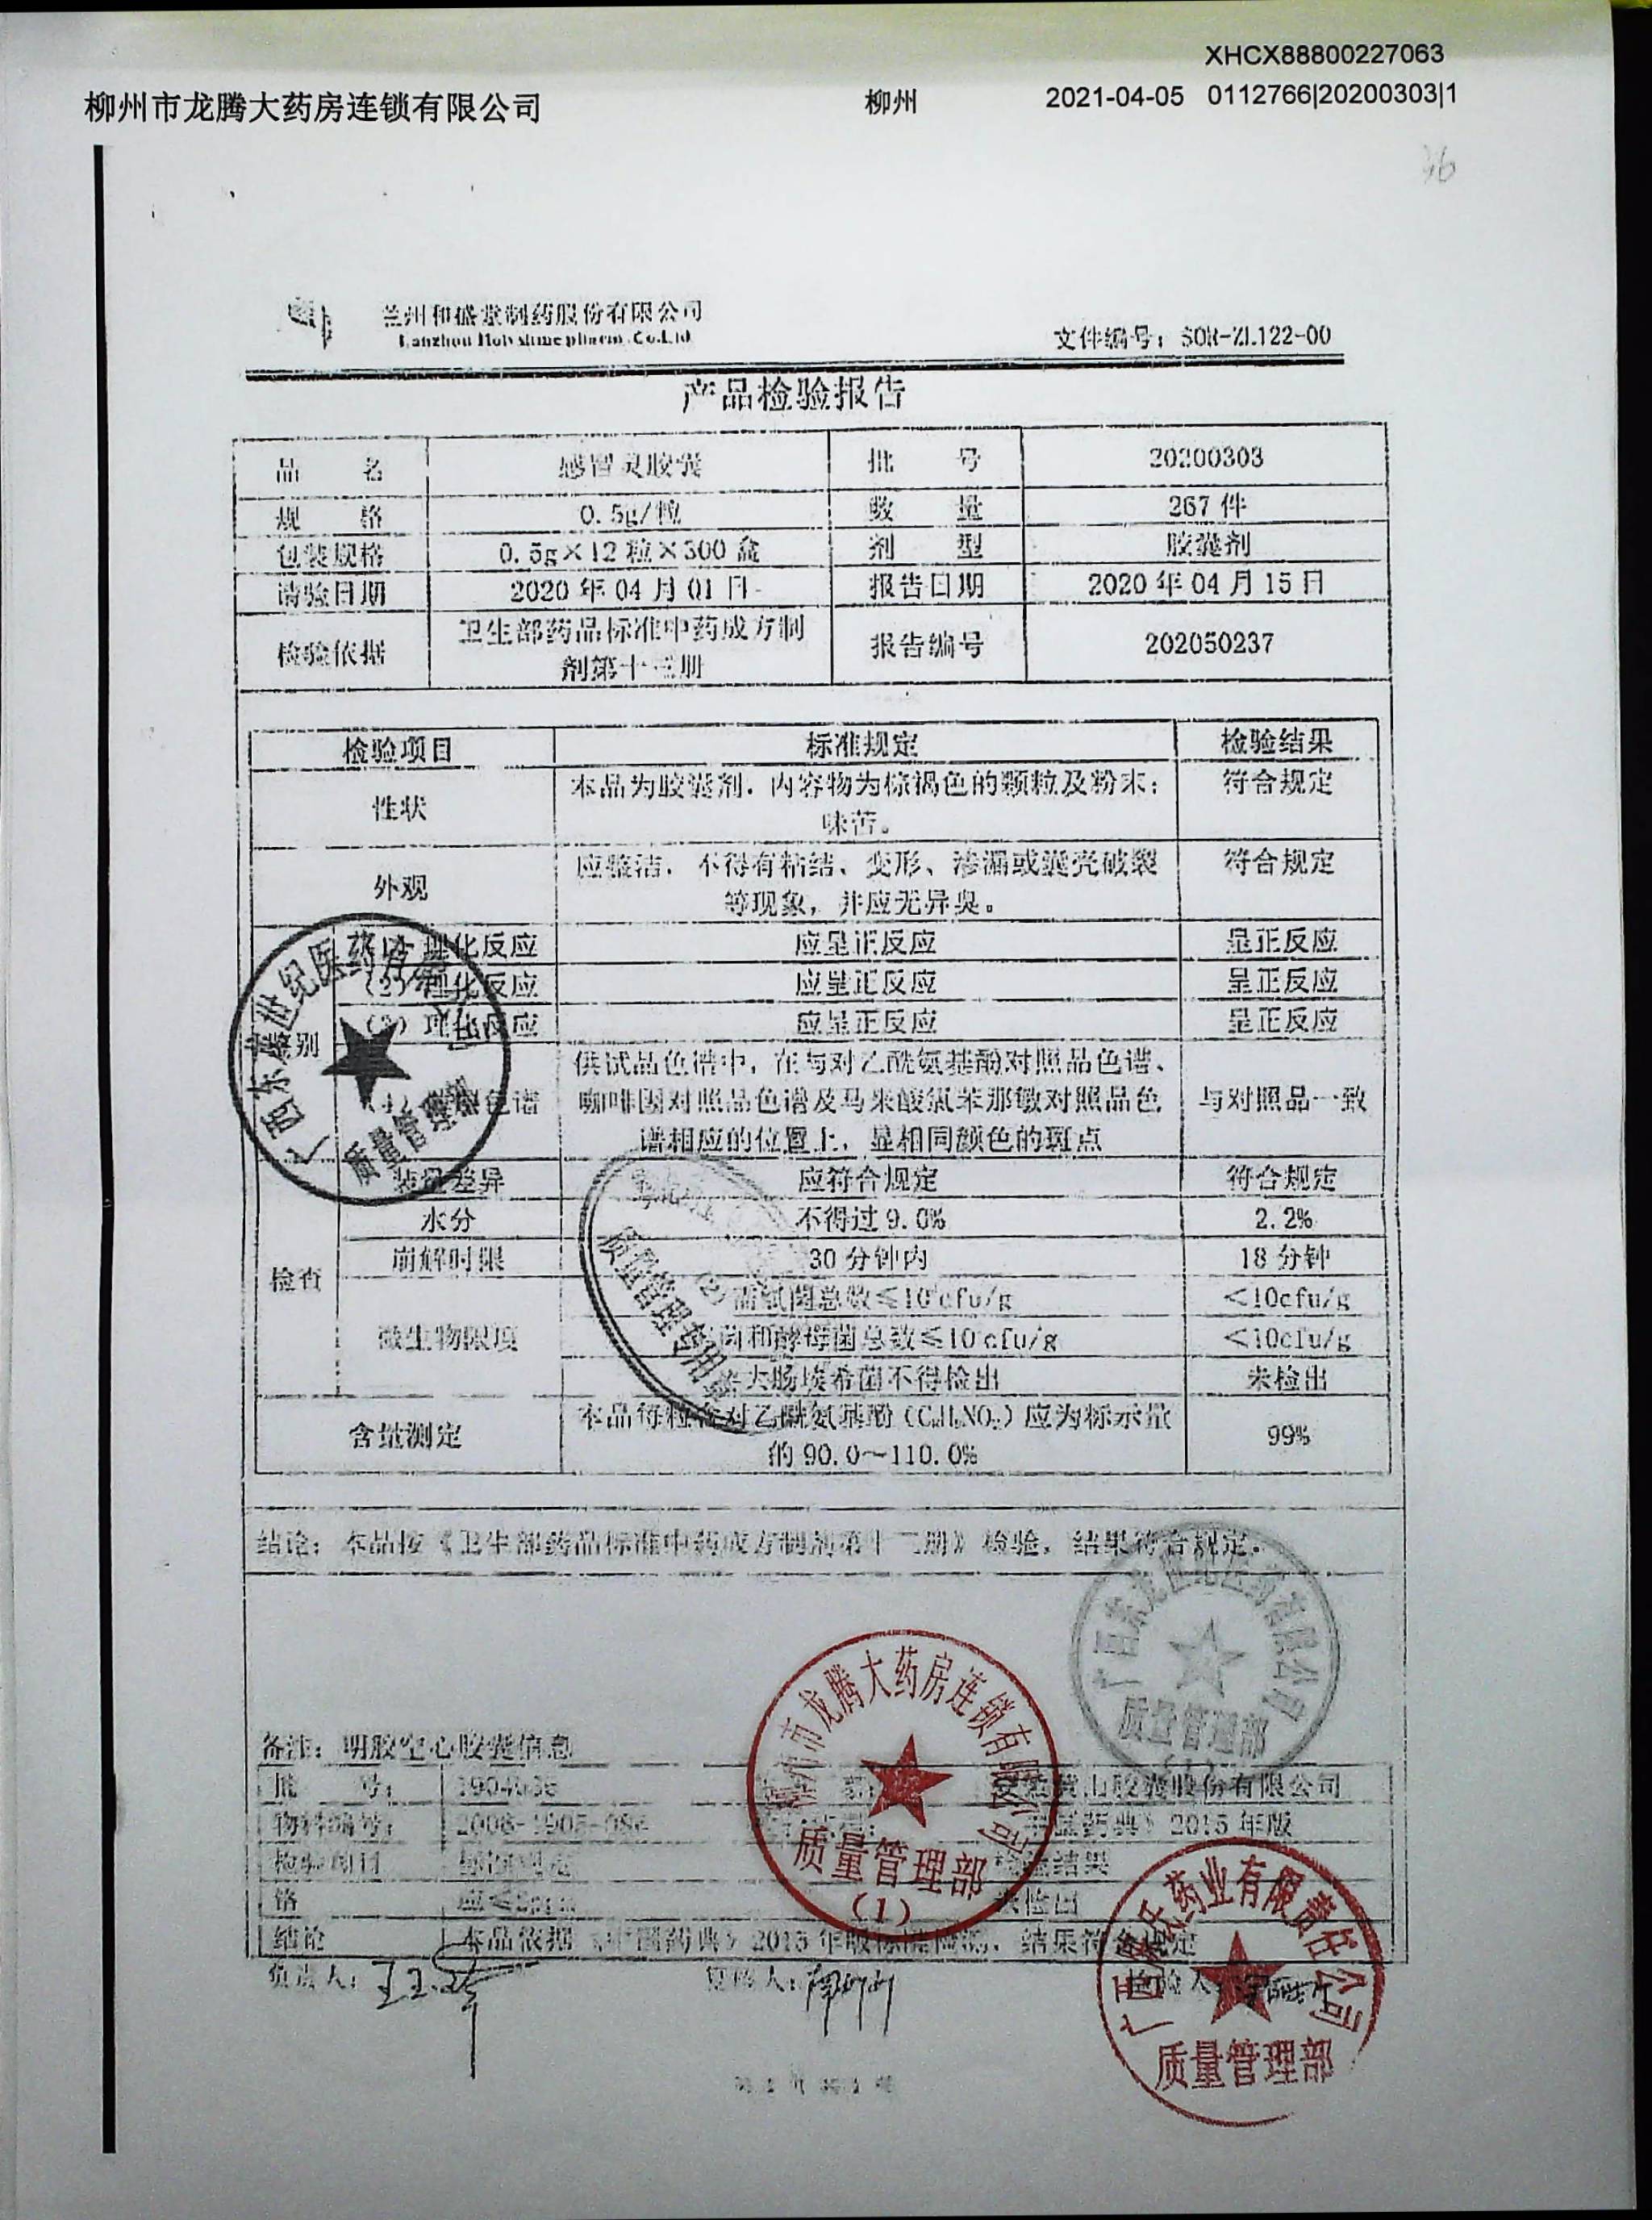 XHCX88800227063
柳州市龙腾大药房连锁有限公司 柳州 2021-04-05 0112766|20200303|1
兰州和盛堂制药股份有限公司
文件编号：SOR-ZL122-00
产品检验报告
品 名 感冒灵胶囊 批 号 20200303
规 格 0.5g/粒 数 量 267 件
包装规格 0.5g×12 粒×300 盒 剂 型 胶囊剂
请验日期 2020 年 04 月 01 日 报告日期 2020 年 04 月 15 日
检验依据 卫生部药品标准中药成方制 报告编号 202050237
剂第十 册
检验项目 标准规定 检验结果
性状 本品为胶囊剂，内容物为棕褐色的颗粒及粉末； 符合规定
味苦。
外观 应整洁，不得有粘结、变形、渗漏或囊壳破裂 符合规定
等现象，并应无异臭。
理化反应 应呈正反应 呈正反应
（2）理化反应 应呈正反应 呈正反应
理化反应 应呈正反应 呈正反应
别
供试品色谱中，在与对乙酰氨基酚对照品色谱、
色谱 咖啡因对照品色谱及马来酸氯苯那敏对照品色 与对照品一致
谱相应的位置上，显相同颜色的斑点
检查
装量差异 应符合规定 符合规定
水分 不得过 9.0% 2.2%
崩解时限 30 分钟内 18 分钟
微生物限度
菌总数≤10 cfu/g <10cfu/g
菌和酵母菌总数≤10 cfu/g <10cfu/g
大肠埃希菌不得检出 未检出
含量测定 本品每粒含对乙酰氨基酚（C₈H₉NO₂）应为标示量 99%
的 90.0～110.0%
结论：本品按《卫生部药品标准中药成方制剂第十 册》检验，结果符合规定。
备注：明胶空心胶囊信息
批 号： 黄山胶囊股份有限公司
物料编号： 药典》2015 年版
检验项目 检验结果
铬 未检出
结论 本品依据《中国药典》2015 年版标准检测，结果符合规定
负责人： 复核人： 检验人
市龙腾大药房连锁有限公司
质量管理部
（1）
药业有限责任公司
质量管理部
世纪医药
质量管理
质量管理专用
（2）
广西东龙世纪医药有限公司
质量管理部